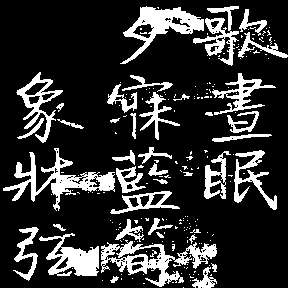 歌晝眠
夕寐藍筍
象牀弦